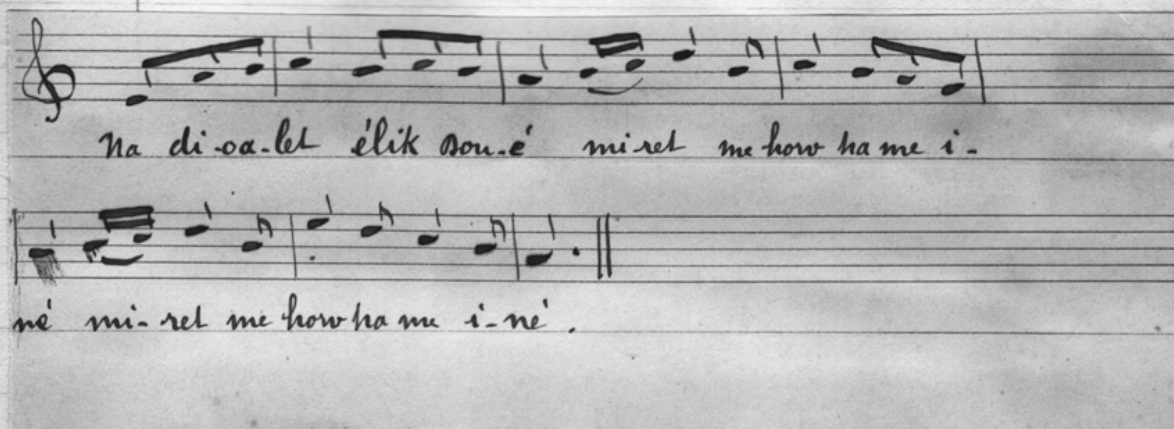 Na di-oa-let élik Dou-é mi-ret me how ha me i-
né mi-ret me how ha me i-né.